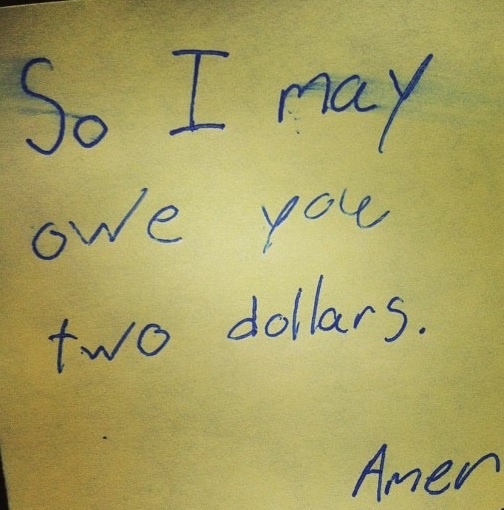 So I may
owe you
two dollars.
Amen